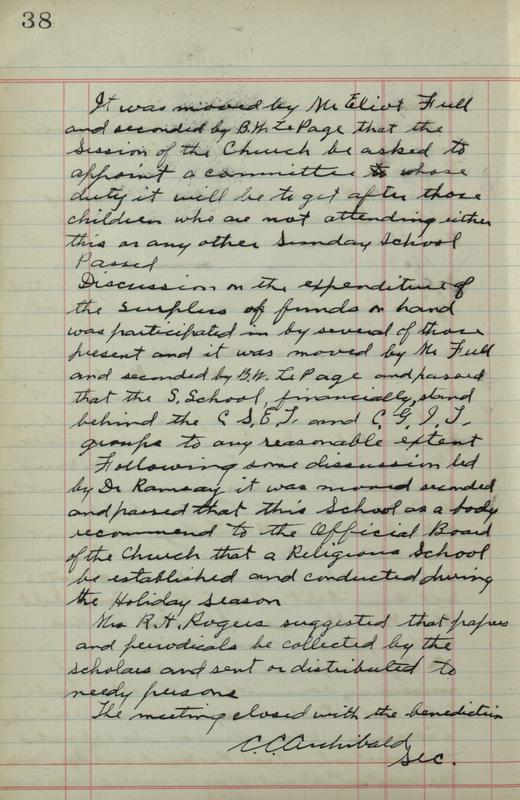 38
It was moved by Mr Eliot Full
and seconded by B.W. LePage that the
Session of the Church be asked to
appoint a committee whose
duty it will be to get after those
children who are not attending either
this or any other Sunday School
Passed
Discussion on the expenditure of
the surplus of funds on hand
was participated in by several of those
present and it was moved by Mr Full
and seconded by B.W. LePage and passed
that the S. School, financially, stand
behind the C.S.E.T. and C.G.I.T.
groups to any reasonable extent
Following some discussion led
by Dr Ramsay it was moved seconded
and passed that this School as a body
recommend to the Official Board
of the Church that a Religious School
be established and conducted during
the Holiday season
Mrs R.H. Rogers suggested that papers
and periodicals be collected by the
scholars and sent or distributed to
needy persons
The meeting closed with the benediction
C.C. Archibald
Sec.